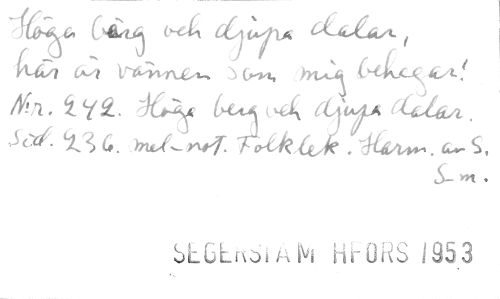 Höga berg och djupa dalar,
här är vännen som mig behagar!
N:r. 242. Höga berg och djupa dalar.
Sid. 236. mel-not. Folklek. Harm. av S.
S-m.
SEGERSTAM HFORS 1953